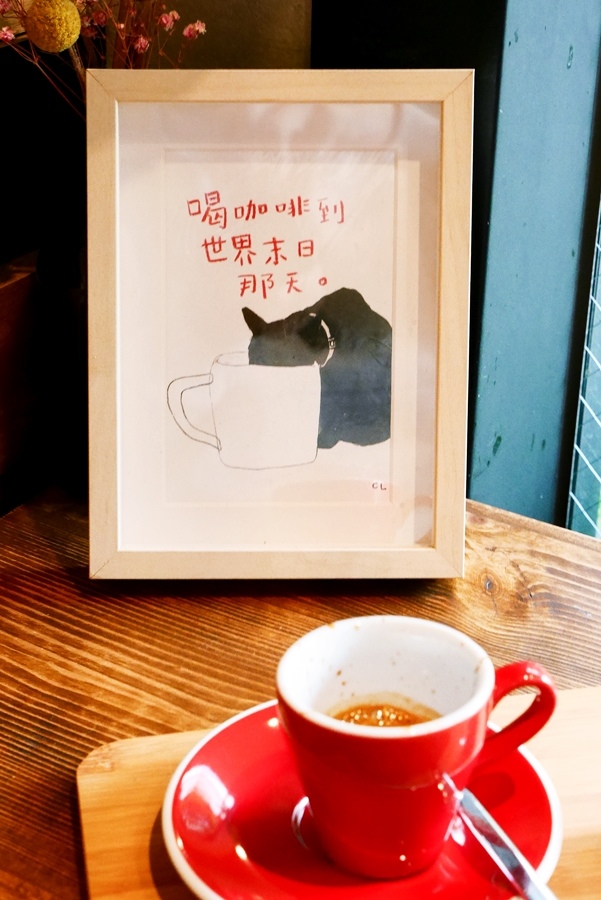 喝咖啡到
世界末日
那天。
CL